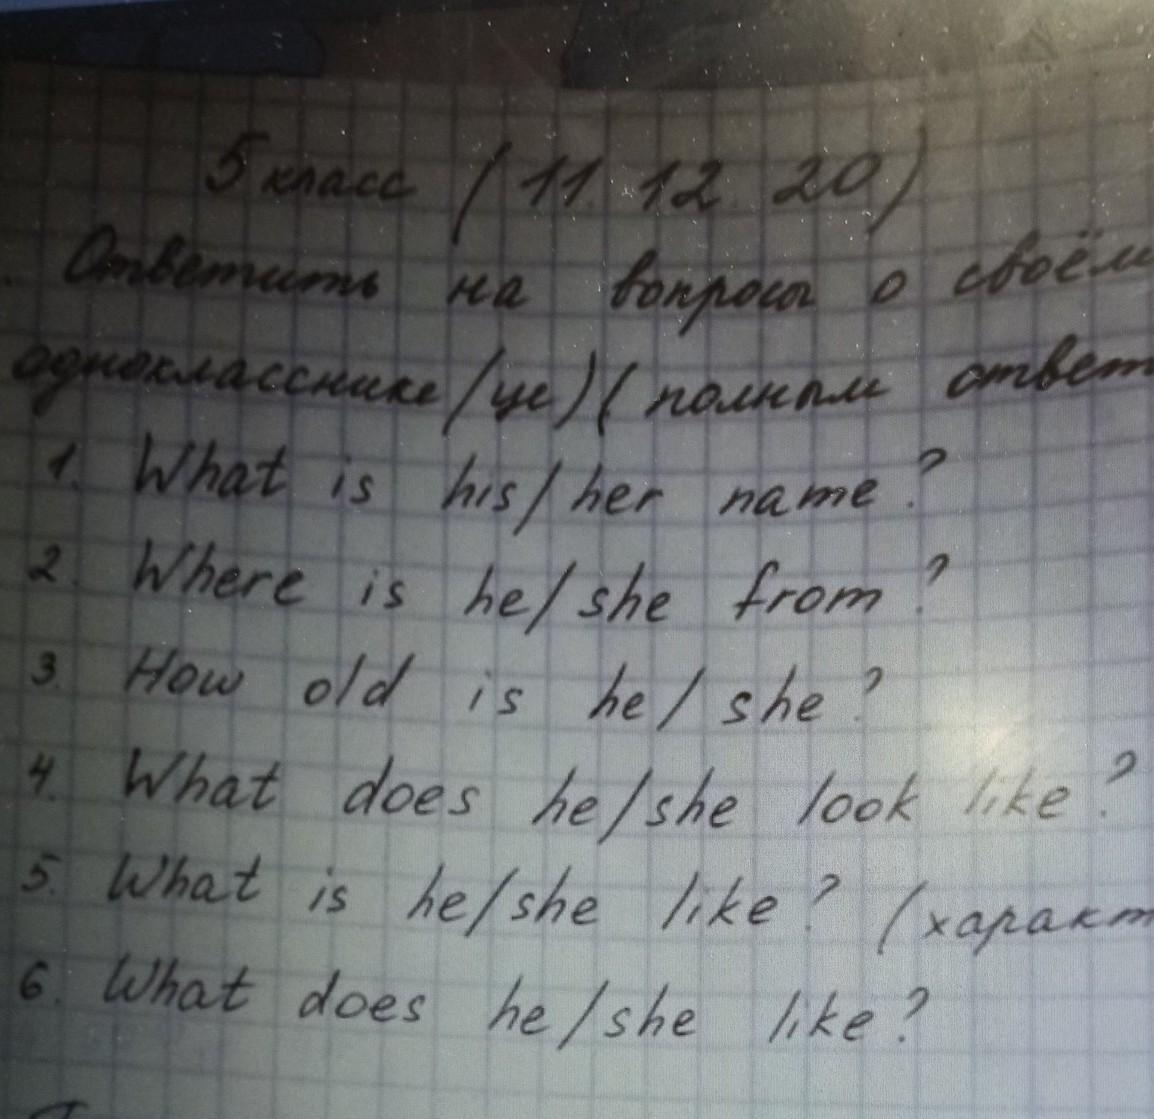 5 класс (11. 12. 20)
Ответить на вопросы о своём
однокласснике/це) (полным ответ
1. What is his/her name?
2. Where is he/she from?
3. How old is he/she?
4. What does he/she look like?
5. What is he/she like? (характ
6. What does he/she like?